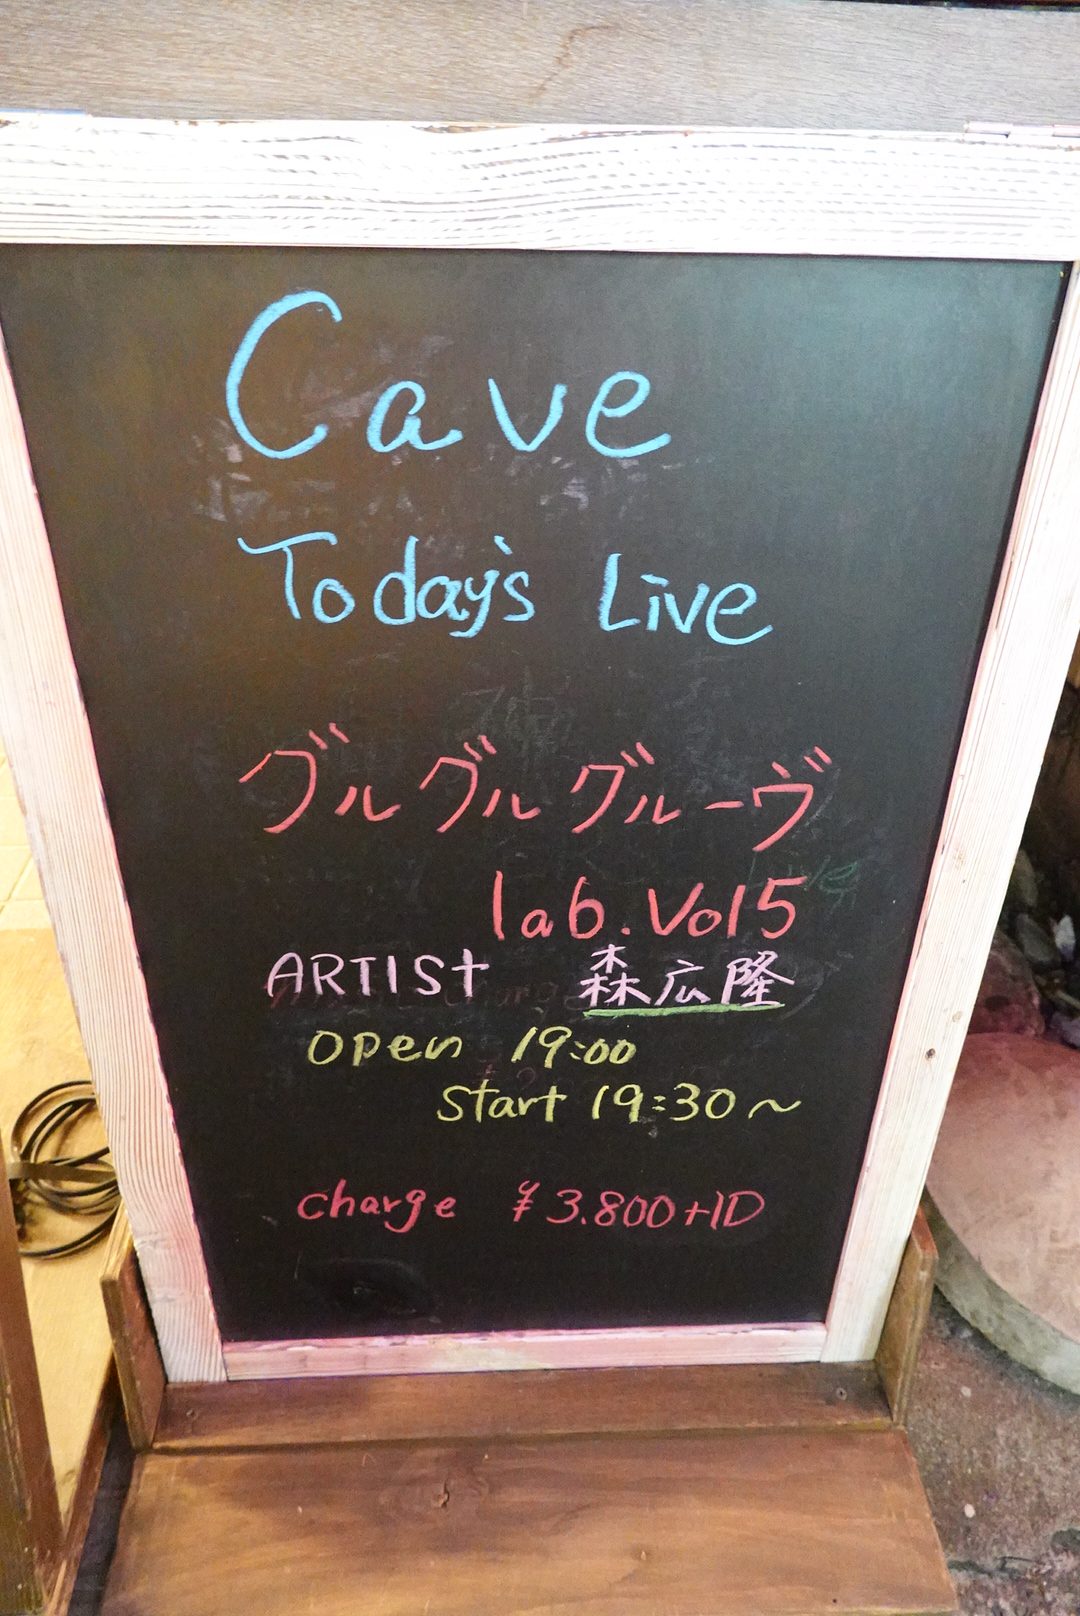 Cave
Today's Live
グルグルグルーヴ
lab.Vol5
ARTISt 森広隆
open 19:00
start 19:30～
charge ¥3.800+1D